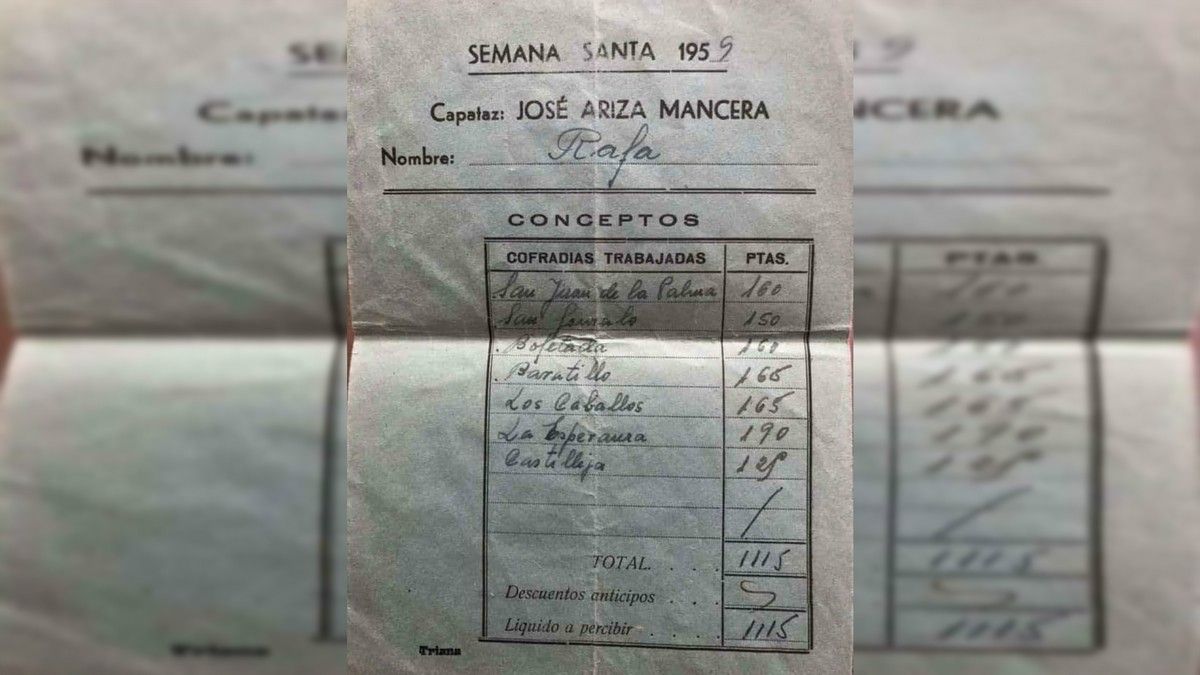 SEMANA SANTA 1959
Capataz: JOSÉ ARIZA MANCERA
Nombre: Rafa
CONCEPTOS
COFRADIAS TRABAJADAS PTAS.
San Juan de la Palma 160
San Gonzalo 150
Bofetada 160
Baratillo 165
Los Caballos 165
La Esperanza 190
Castilleja 125
TOTAL. . . . 1115
Descuentos anticipos . . .
Liquido a percibir . . . . 1115
Triana